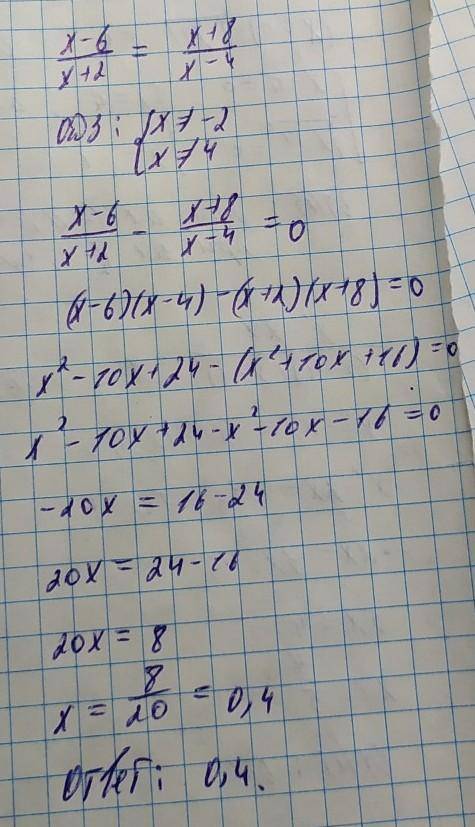 (x-6)/(x+2) = (x+8)/(x-4)
ОДЗ: { x ≠ -2
x ≠ 4
(x-6)/(x+2) - (x+8)/(x-4) = 0
(x-6)(x-4) - (x+2)(x+8) = 0
x² - 10x + 24 - (x² + 10x + 16) = 0
x² - 10x + 24 - x² - 10x - 16 = 0
-20x = 16 - 24
20x = 24 - 16
20x = 8
x = 8/20 = 0,4
Ответ: 0,4.